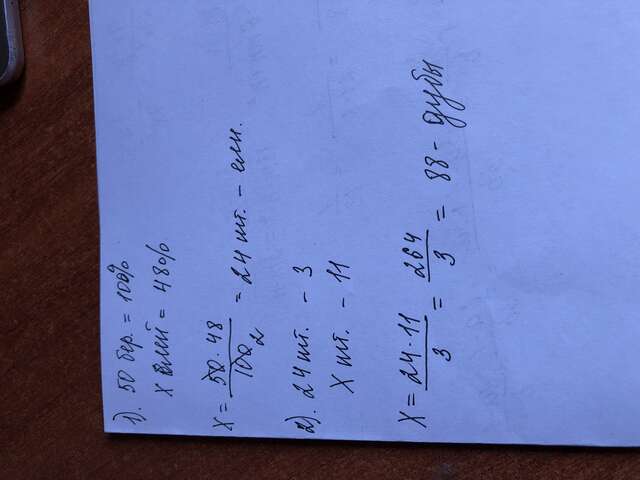 1). 50 бер. = 100%
х елей = 48%
х = 50 · 48 / 100 2 = 24 шт. - ели.
2). 24 шт. - 3
х шт. - 11
х = 24 · 11 / 3 = 264 / 3 = 88 - дубы